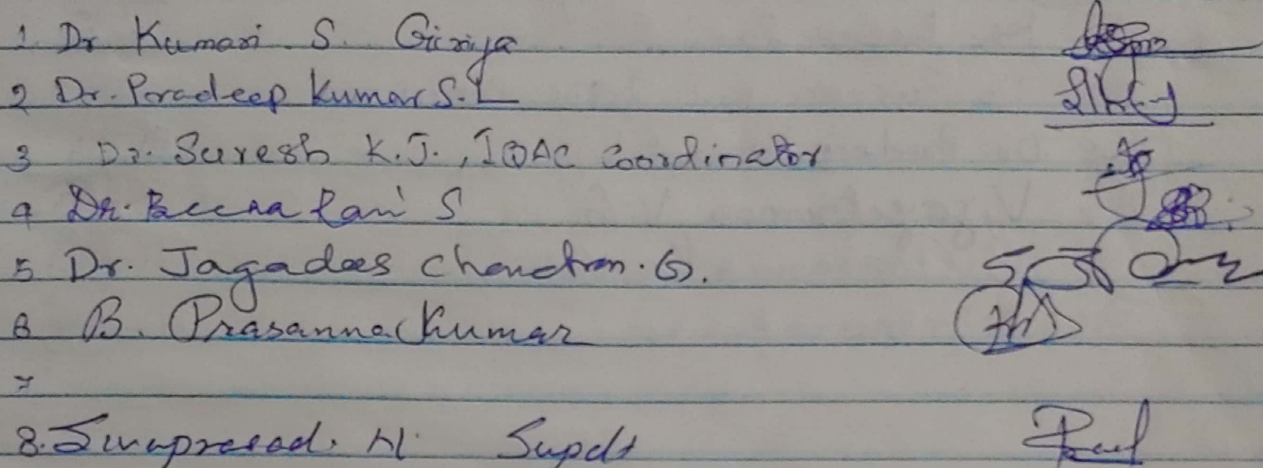 1 Dr Kumari S. Girija
2 Dr. Pradeep Kumar S.L
3 Dr. Suresh K.J., IQAC Coordinator
4 Dr. Beena Rani S
5 Dr. Jagadees Chandran. G.
6 B. Prasanna Kumar
7
8. Sivaprasad. H. Supdt